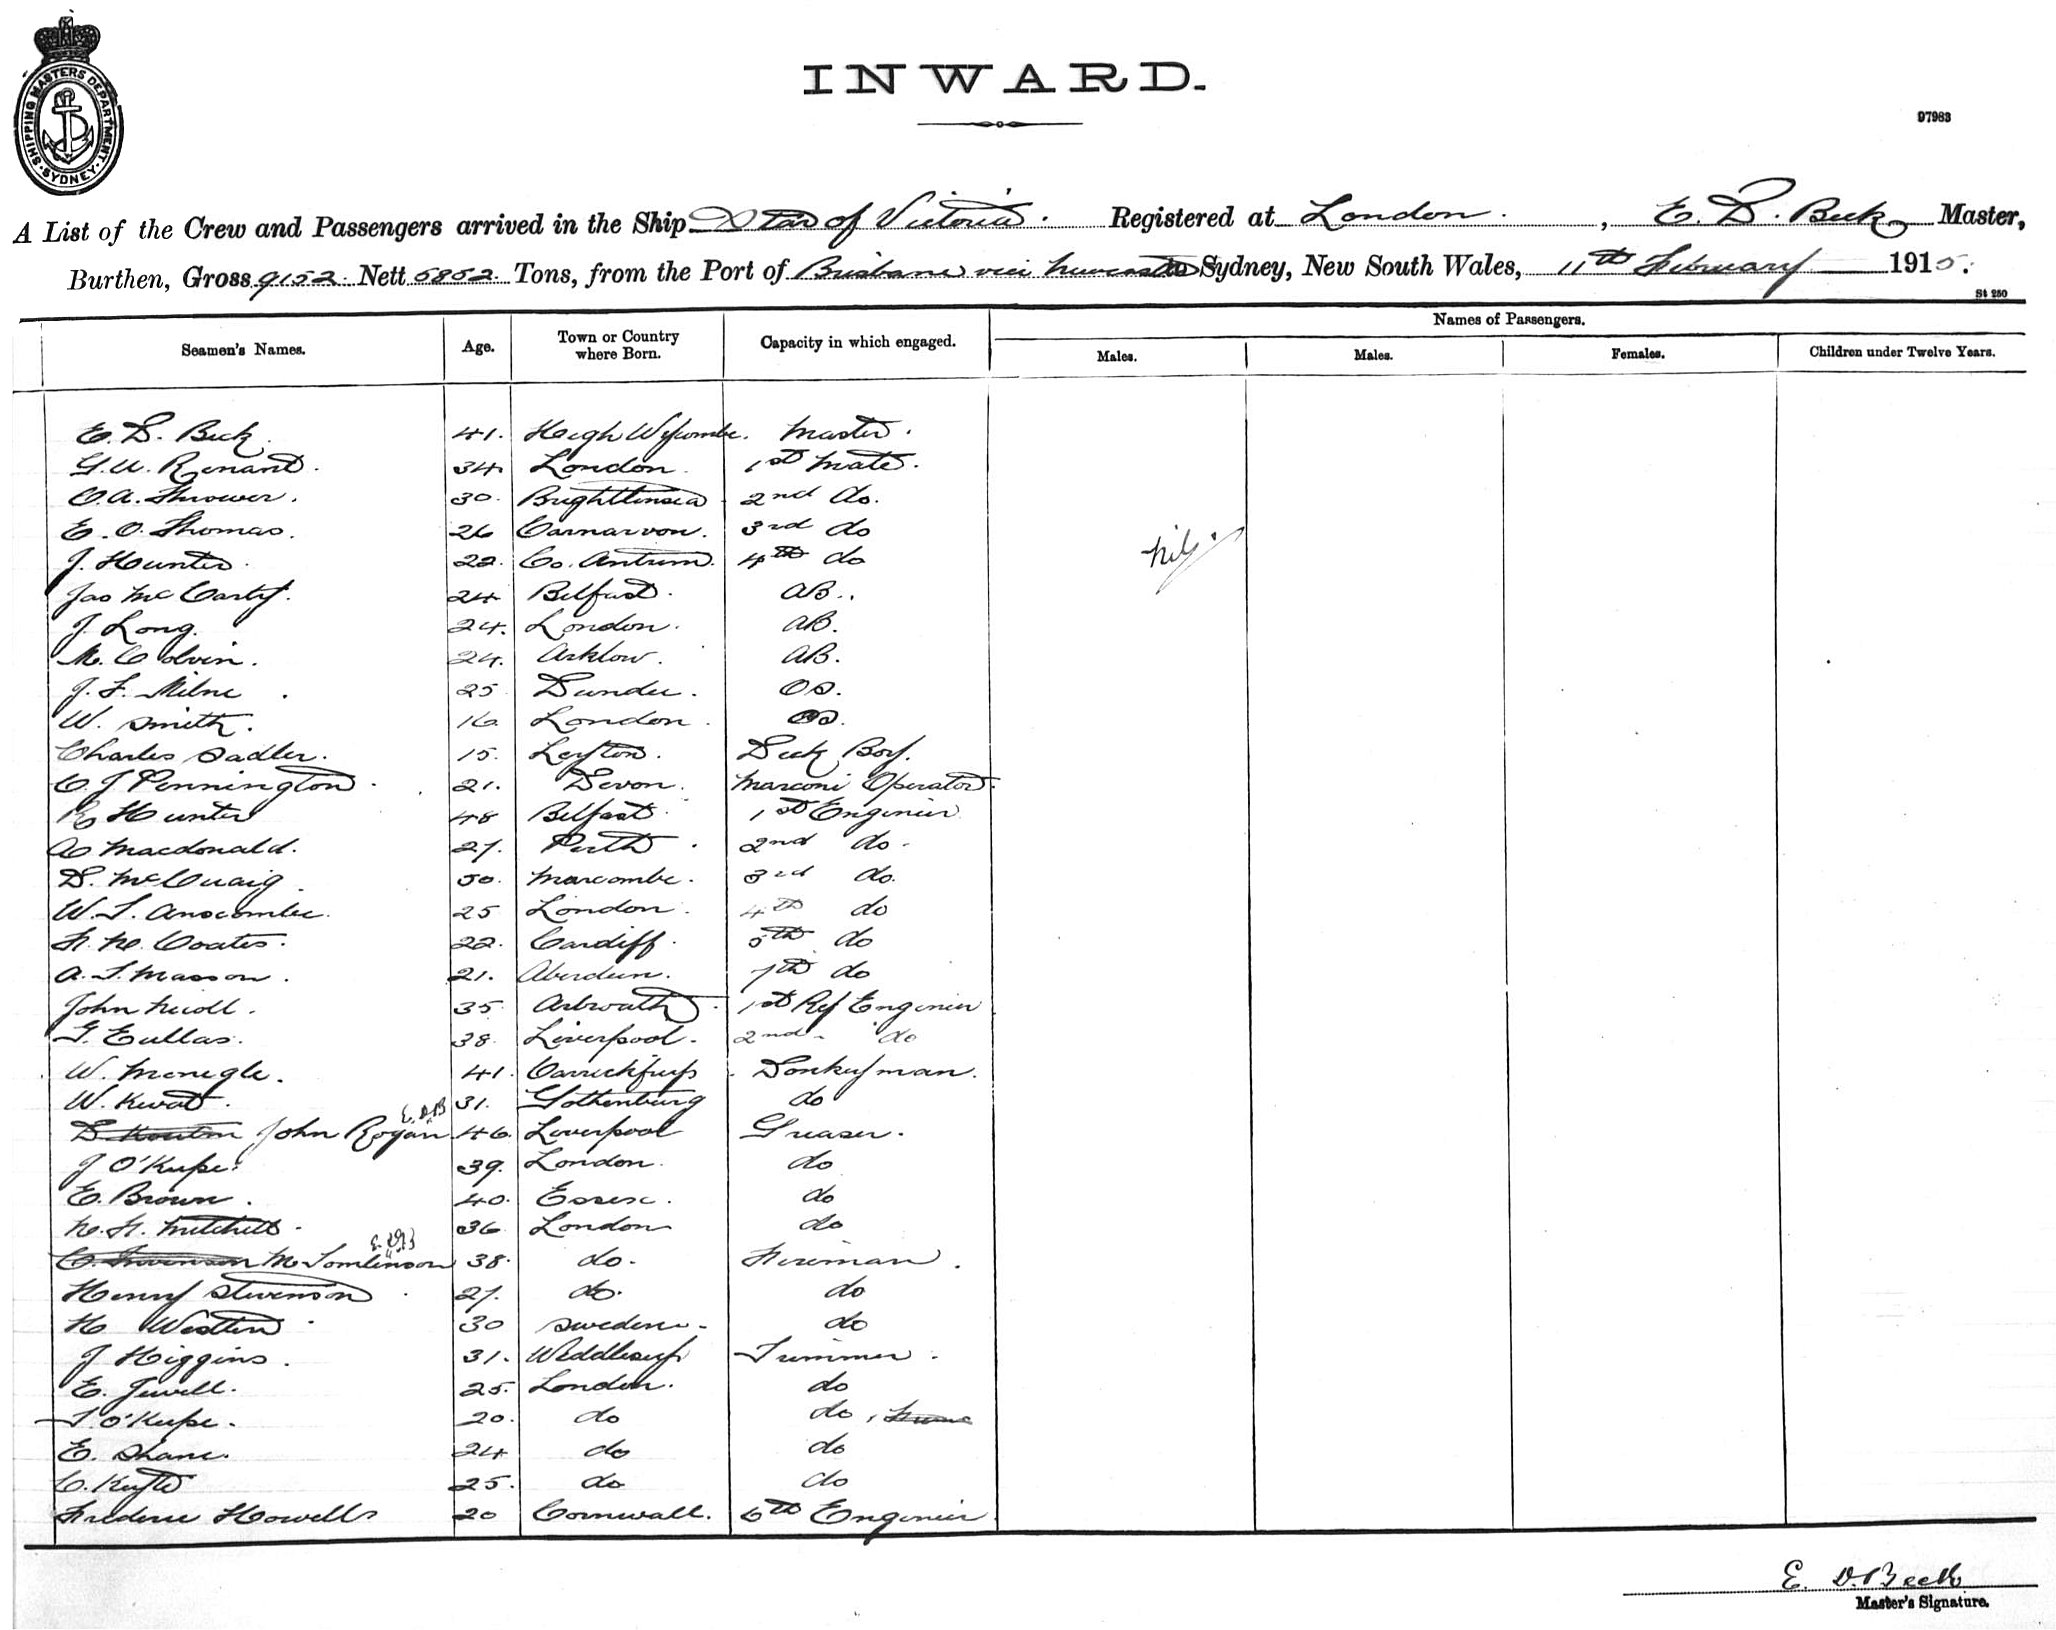 SHIPPING MASTERS DEPARTMENT. SYDNEY
INWARD.
97983
A List of the Crew and Passengers arrived in the Ship Star of Victoria. Registered at London. , E. D. Beck Master,
Burthen, Gross 9152. Nett 5852. Tons, from the Port of Brisbane via Newcastle to Sydney, New South Wales, 11th February 1915.
St 250
Seamen's Names. Age. Town or Country where Born. Capacity in which engaged. Names of Passengers.
Males. Males. Females. Children under Twelve Years.
E. D. Beck. 41. High Wycombe. Master.
G. W. Renant. 34 London. 1st Mate.
C. A. Thrower. 30. Brightlinsea 2nd do.
E. O. Thomas. 26 Carnarvon. 3rd do
J. Hunter. 22. Co. Antrim. 4th do
Nil.
Jas McCarty. 24 Belfast. AB.
J. Long. 24. London. AB.
M. Colvin. 24. Arklow. AB.
J. F. Milne. 25 Dundee. OS.
W. Smith. 16. London. OS.
Charles Sadler. 15. Leyton. Deck Boy.
C. J Pennington. 21. Devon. Marconi Operator.
R Hunter 48 Belfast. 1st Engineer
A Macdonald. 27. Perth. 2nd do.
D. McCuaig. 50. Marcombe. 3rd do.
W. S. Anscombe. 25 London. 4th do
F. H. Coates. 22. Cardiff. 5th do
A. S. Masson. 21. Aberdeen. 7th do
John Nicoll. 35 Arbroath. 1st Ref Engineer
G. Eullas. 38. Liverpool. 2nd do
W. Monegle. 41. Carrickfergs Donkeyman.
W. 31. Gothenburg do
E. D. B
D John Rogan 46. Liverpool Greaser.
J O'Keefe. 39. London. do
E. Brown. 40. Essex. do
H. H. Mitchell. 36 London do
E. D. B
C. Swenson M Tomlinson 38. do. Fireman.
Henry Stevenson 27. do. do
H Westlin 30 Sweden. do
J Higgins. 31. Trimmer.
E. Jewell. 25. London. do
T. O'Keefe. 20. do do
E. Shane. 24 do do
C. 25. do do
Frederic Howells 20 Cornwall. 6th Engineer
E. D. Beck
Master's Signature.